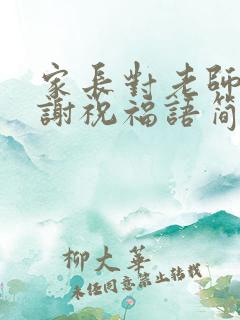 家長對老師
謝祝福語簡
柳大華
未經同意禁止轉載